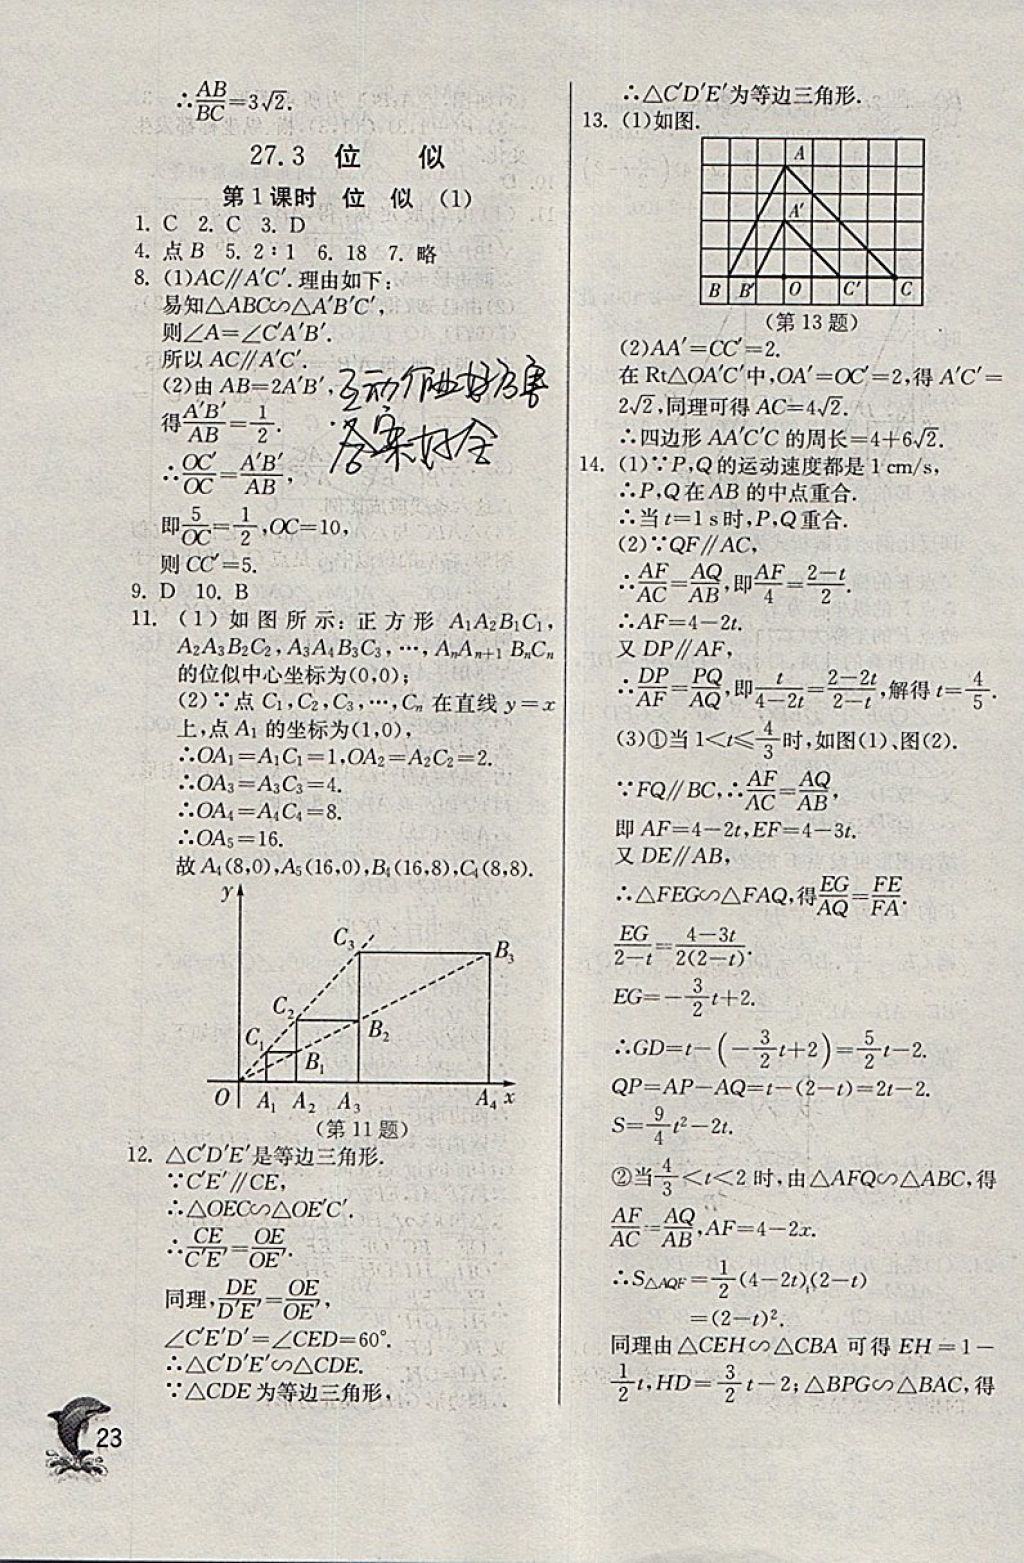 ∴AB/BC=3√2.
27.3 位 似
第1课时 位 似 (1)
1. C 2. C 3. D
4. 点B 5. 2∶1 6. 18 7. 略
8. (1)AC∥A′C′.理由如下:
易知△ABC∽△A′B′C′,
则∠A=∠C′A′B′.
所以AC∥A′C′.
(2)由AB=2A′B′,
得A′B′/AB=1/2.
∴OC′/OC=A′B′/AB,
即5/OC=1/2,OC=10,
则CC′=5.
9. D 10. B
11. (1)如图所示:正方形A₁A₂B₁C₁,
A₂A₃B₂C₂,A₃A₄B₃C₃,…,AₙAₙ₊₁BₙCₙ
的位似中心坐标为(0,0);
(2)∵点C₁,C₂,C₃,…,Cₙ在直线y=x
上,点A₁的坐标为(1,0),
∴OA₁=A₁C₁=1,OA₂=A₂C₂=2.
∴OA₃=A₃C₃=4.
∴OA₄=A₄C₄=8.
∴OA₅=16.
故A₄(8,0),A₅(16,0),B₄(16,8),C₄(8,8).
y
C₃
B₃
C₂
B₂
C₁
B₁
O A₁ A₂ A₃ A₄ x
(第11题)
12. △C′D′E′是等边三角形.
∵C′E′∥CE,
∴△OEC∽△OE′C′.
∴CE/C′E′=OE/OE′.
同理,DE/D′E′=OE/OE′,
∠C′E′D′=∠CED=60°.
∴△C′D′E′∽△CDE.
∵△CDE为等边三角形,
23
互动作业好厉害
答案好全
∴△C′D′E′为等边三角形.
13. (1)如图.
A
A′
B B′ O C′ C
(第13题)
(2)AA′=CC′=2.
在Rt△OA′C′中,OA′=OC′=2,得A′C′=
2√2,同理可得AC=4√2.
∴四边形AA′C′C的周长=4+6√2.
14. (1)∵P,Q的运动速度都是1 cm/s,
∴P,Q在AB的中点重合.
∴当t=1 s时,P,Q重合.
(2)∵QF∥AC,
∴AF/AC=AQ/AB,即AF/4=(2-t)/2.
∴AF=4-2t.
又DP∥AF,
∴DP/AF=PQ/AQ,即t/(4-2t)=(2-2t)/(2-t),解得t=4/5.
(3)①当1<t≤4/3时,如图(1)、图(2).
∵FQ∥BC,∴AF/AC=AQ/AB,
即AF=4-2t,EF=4-3t.
又DE∥AB,
∴△FEG∽△FAQ,得EG/AQ=FE/FA.
EG/(2-t)=(4-3t)/(2(2-t)).
EG=-3/2t+2.
∴GD=t-(-3/2t+2)=5/2t-2.
QP=AP-AQ=t-(2-t)=2t-2.
S=9/4t²-2t.
②当4/3<t<2时,由△AFQ∽△ABC,得
AF/AC=AQ/AB,AF=4-2x.
∴S△AQF=1/2(4-2t)(2-t)
=(2-t)².
同理由△CEH∽△CBA可得EH=1-
1/2t,HD=3/2t-2;△BPG∽△BAC,得